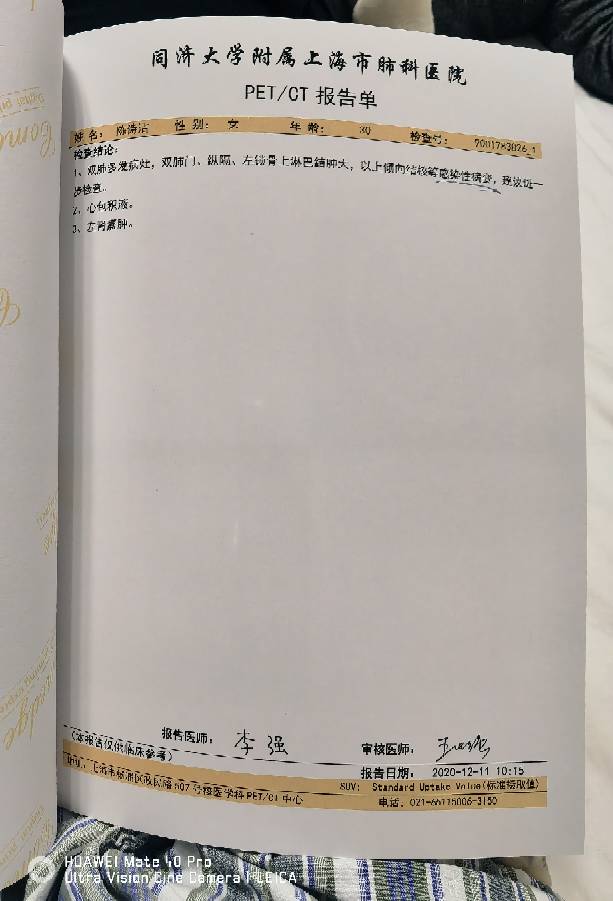 同济大学附属上海市肺科医院
PET/CT 报告单
姓 名： 陈 洁 性 别： 女 年 龄： 30 检查号：
检查结论：
1、双肺多发病灶，双肺门、纵隔、左锁骨上淋巴结肿大，以上倾向结核等感染性病变，建议进一
步检查。
2、心包积液。
3、右肾囊肿。
报告医师： 李强
审核医师：
（本报告仅供临床参考）
报告日期： 2020-12-11 10:15
SUV: Standard Uptake Value(标准摄取值)
地址：上海市杨浦区政民路507号核医学科PET/CT中心
电话：021-65115006-3150
HUAWEI Mate 40 Pro
Ultra Vision Cine Camera | LEICA